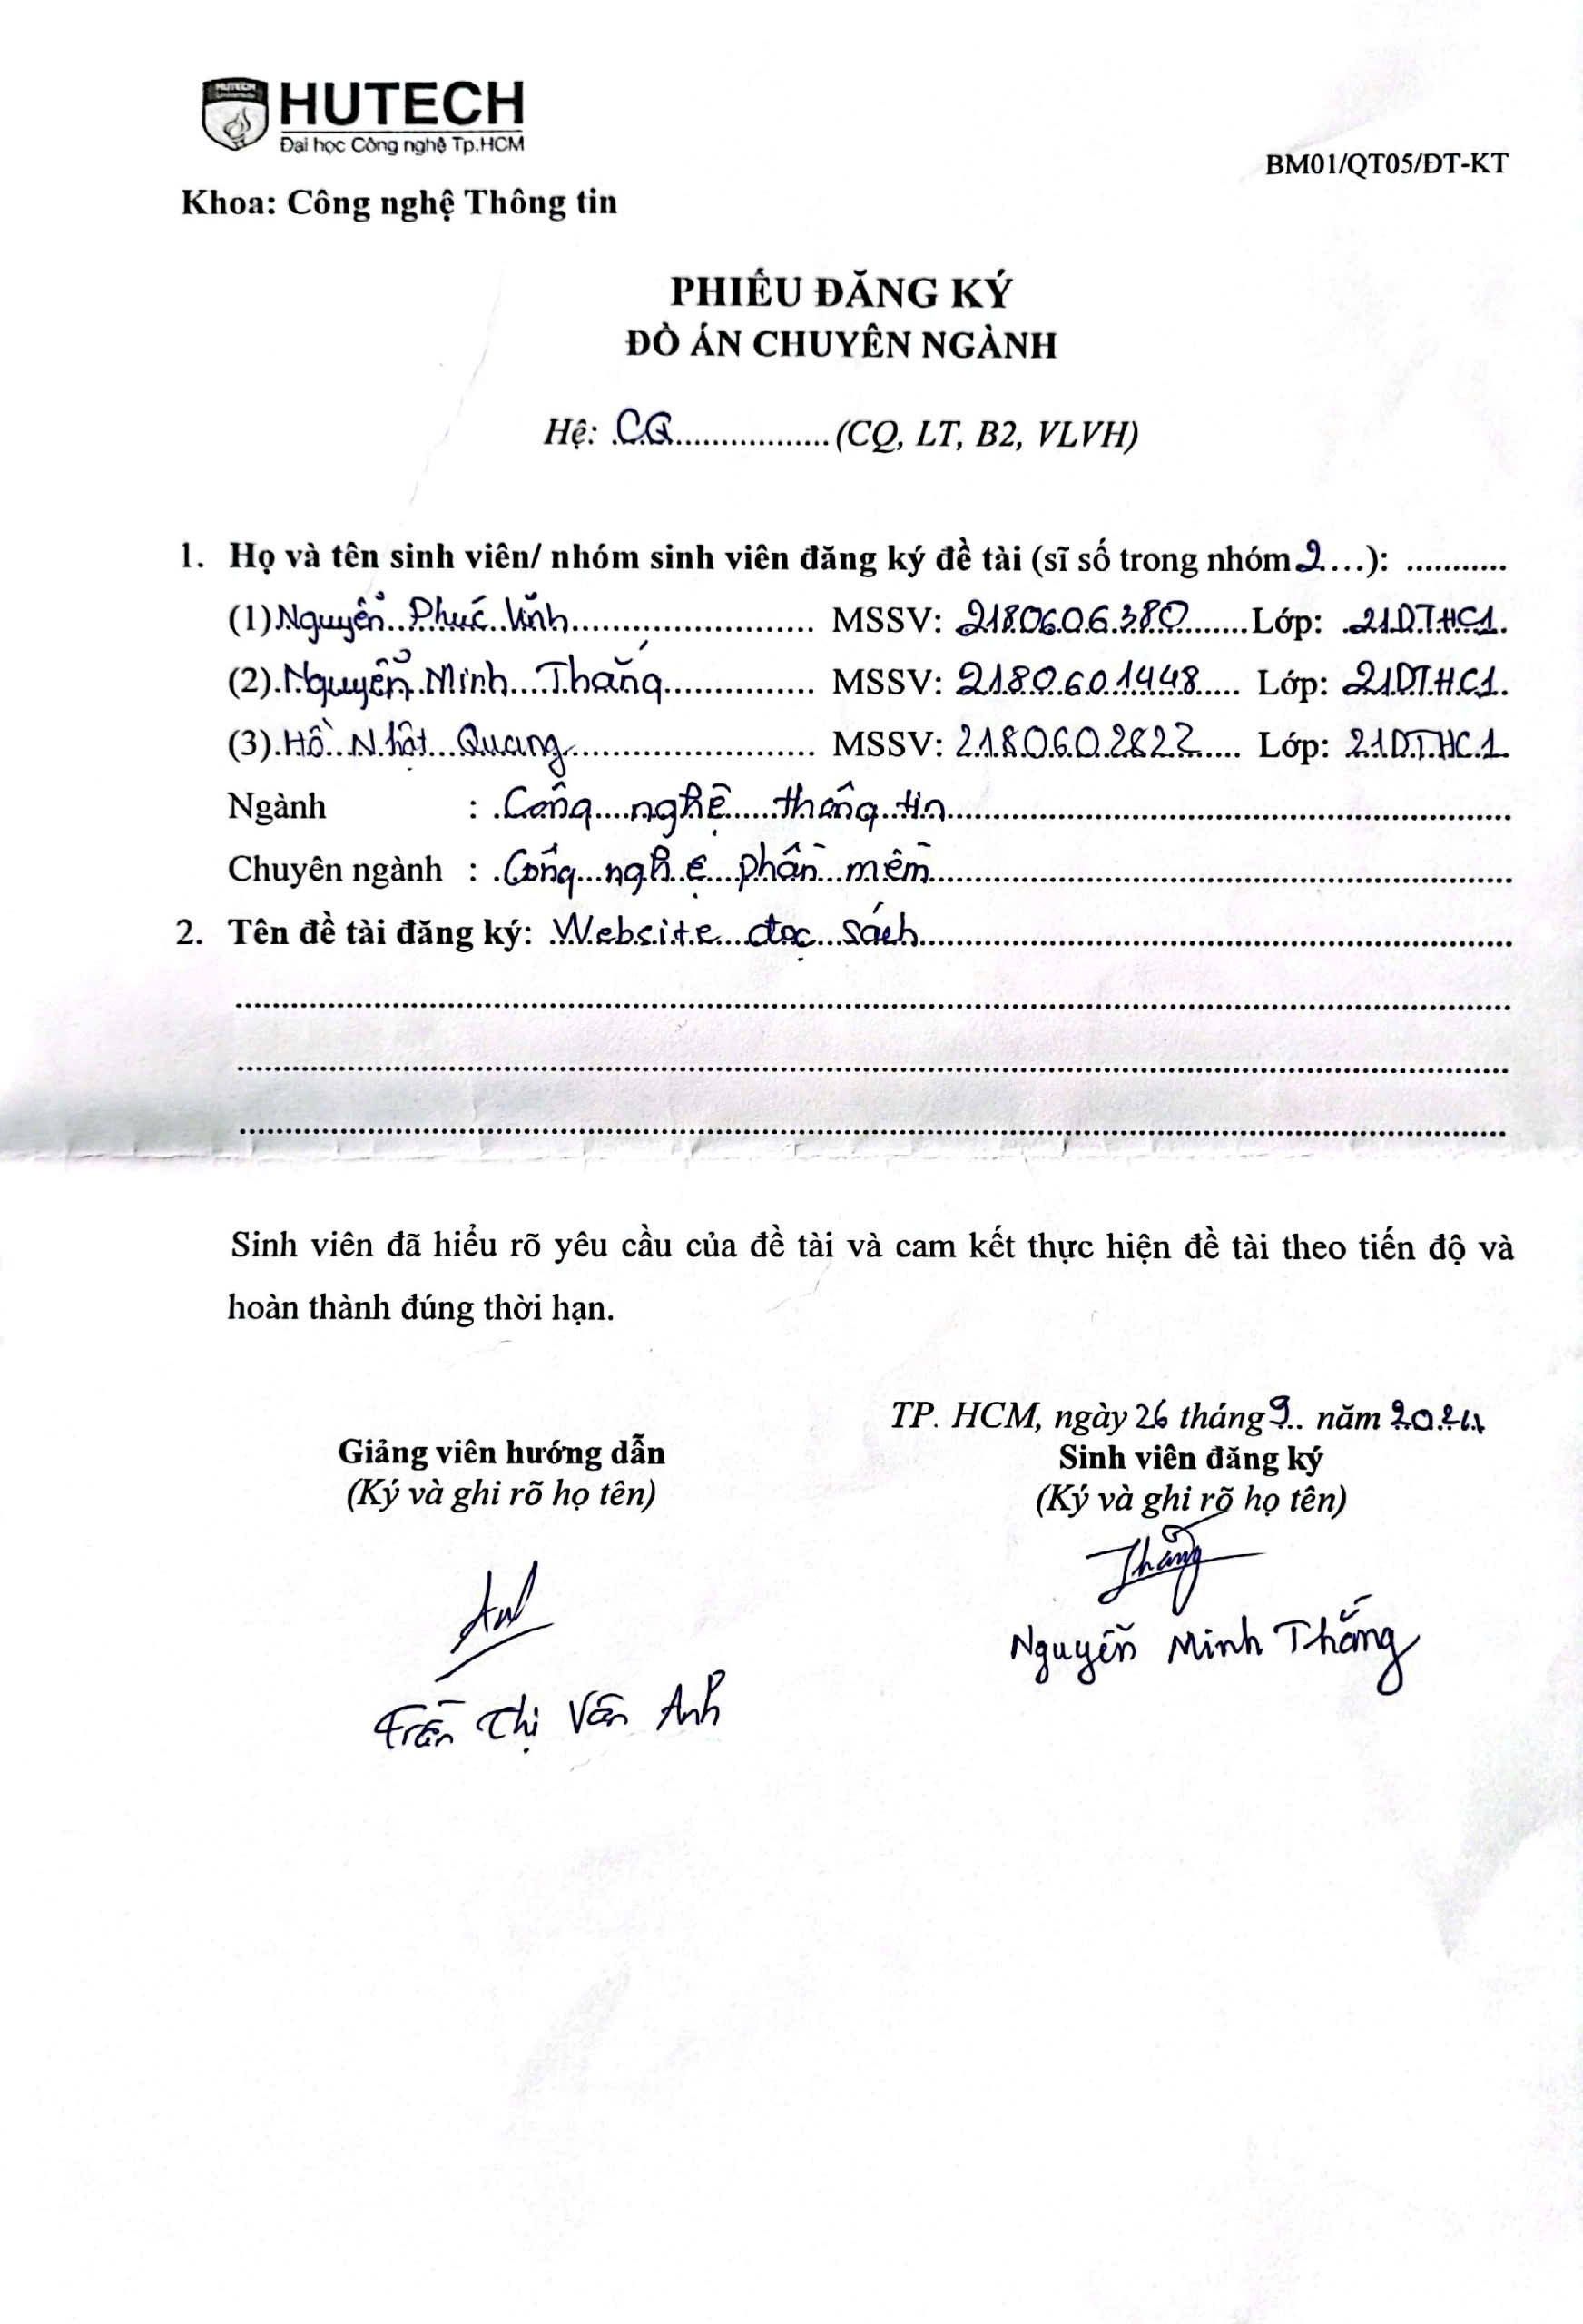 HUTECH
Đại học Công nghệ Tp.HCM
BM01/QT05/ĐT-KT
Khoa: Công nghệ Thông tin
PHIẾU ĐĂNG KÝ
ĐỒ ÁN CHUYÊN NGÀNH
Hệ: CQ (CQ, LT, B2, VLVH)
1. Họ và tên sinh viên/ nhóm sinh viên đăng ký đề tài (sĩ số trong nhóm 2...): ...........
(1) Nguyễn Phúc Vĩnh MSSV: 2180606380 Lớp: 21DTHC1
(2) Nguyễn Minh Thắng MSSV: 2180601448 Lớp: 21DTHC1
(3) Hồ Nhật Quang MSSV: 2180602822 Lớp: 21DTHC1
Ngành : Công nghệ thông tin
Chuyên ngành : Công nghệ phần mềm
2. Tên đề tài đăng ký: Website đọc sách
Sinh viên đã hiểu rõ yêu cầu của đề tài và cam kết thực hiện đề tài theo tiến độ và
hoàn thành đúng thời hạn.
TP. HCM, ngày 26 tháng 9 năm 2024
Giảng viên hướng dẫn
(Ký và ghi rõ họ tên)
Sinh viên đăng ký
(Ký và ghi rõ họ tên)
Thắng
Nguyễn Minh Thắng
Trần Thị Vân Anh